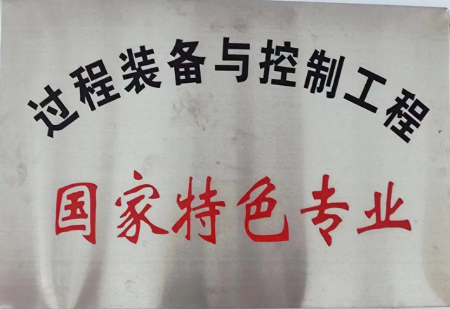 过程装备与控制工程
国家特色专业